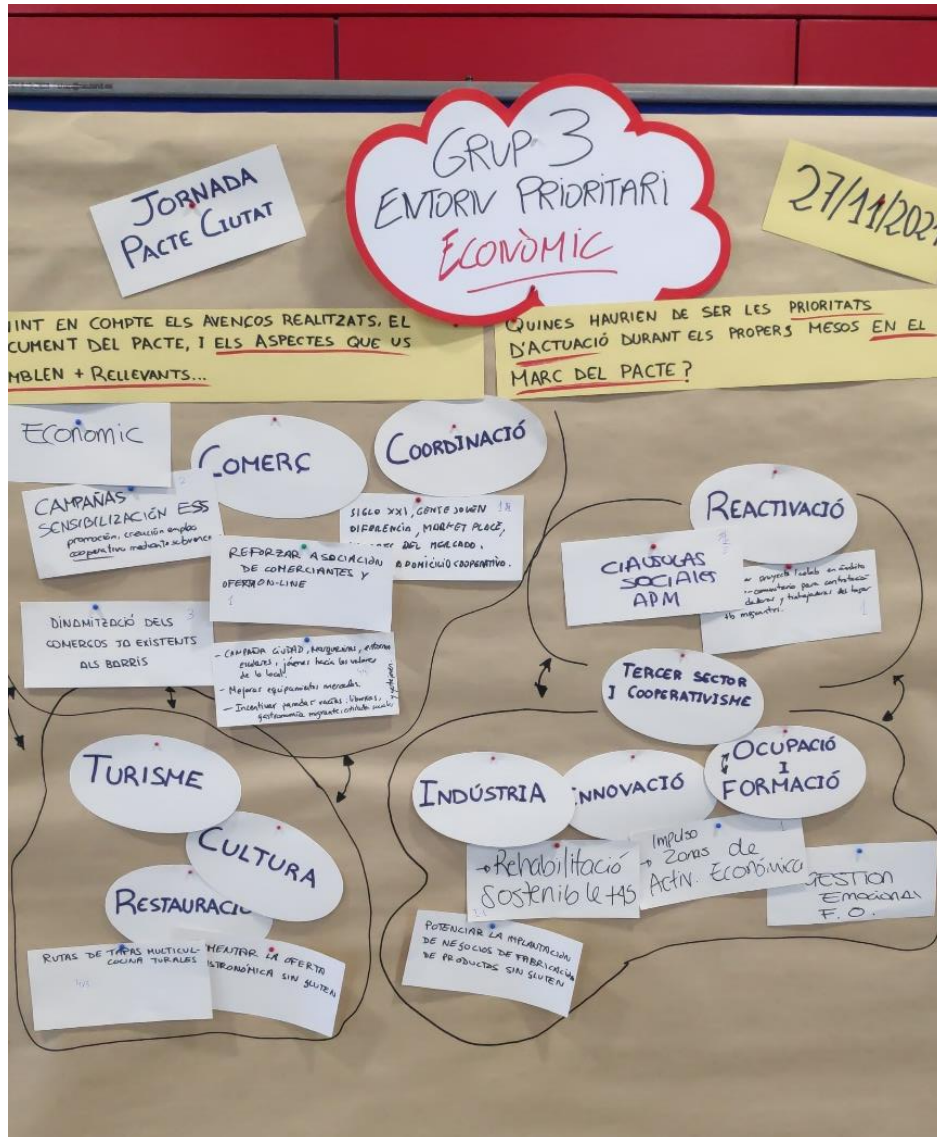 JORNADA
PACTE CIUTAT
GRUP 3
ENTORN PRIORITARI
ECONÒMIC
27/11/202
INT EN COMPTE ELS AVENÇOS REALITZATS, EL
CUMENT DEL PACTE, I ELS ASPECTES QUE US
MBLEN + RELLEVANTS...
QUINES HAURIEN DE SER LES PRIORITATS
D'ACTUACIÓ DURANT ELS PROPERS MESOS EN EL
MARC DEL PACTE?
Económic
COMERÇ
COORDINACIÓ
CAMPAÑAS
SENSIBILIZACIÓN ESS
promoción, creación empleo
cooperativo mediante subvenc
SIGLO XXI, GENTE JOVEN
DIFERENCIA, MARKET PLACE,
DEL MERCADO.
A DOMICILIO COOPERATIVO.
REFORZAR ASOCIACIÓN
DE COMERCIANTES Y
OFERTA ON-LINE
1
DINAMITZACIÓ DELS 3
COMERÇOS JA EXISTENTS
ALS BARRIS
- CAMPAÑA CIUDAD, entornos
escolares, jóvenes hacia los valores
de lo local.
- Mejoras equipamientos mercados
- Incentivar paradas vacías: librerías,
gastronomía migrante,
REACTIVACIÓ
CLAUSULAS
SOCIALES
APM
proyecto en ámbito
comunitario para contratació
y trabajadoras del hogar
migrantes.
1
TERCER SECTOR
I COOPERATIVISME
TURISME
CULTURA
RESTAURACIÓ
RUTAS DE TAPAS MULTICUL-
COCINA TURALES
MENTAR LA OFERTA
STRONÓMICA SIN GLUTEN
INDÚSTRIA
INNOVACIÓ
OCUPACIÓ
I
FORMACIÓ
→ Rehabilitació
Sostenible +45
Impulso 1
→ Zonas de
Activ. Económica
GESTION
Emocional
F. O.
POTENCIAR LA IMPLANTACIÓN
DE NEGOCIOS DE FABRICACIÓN
DE PRODUCTOS SIN GLUTEN